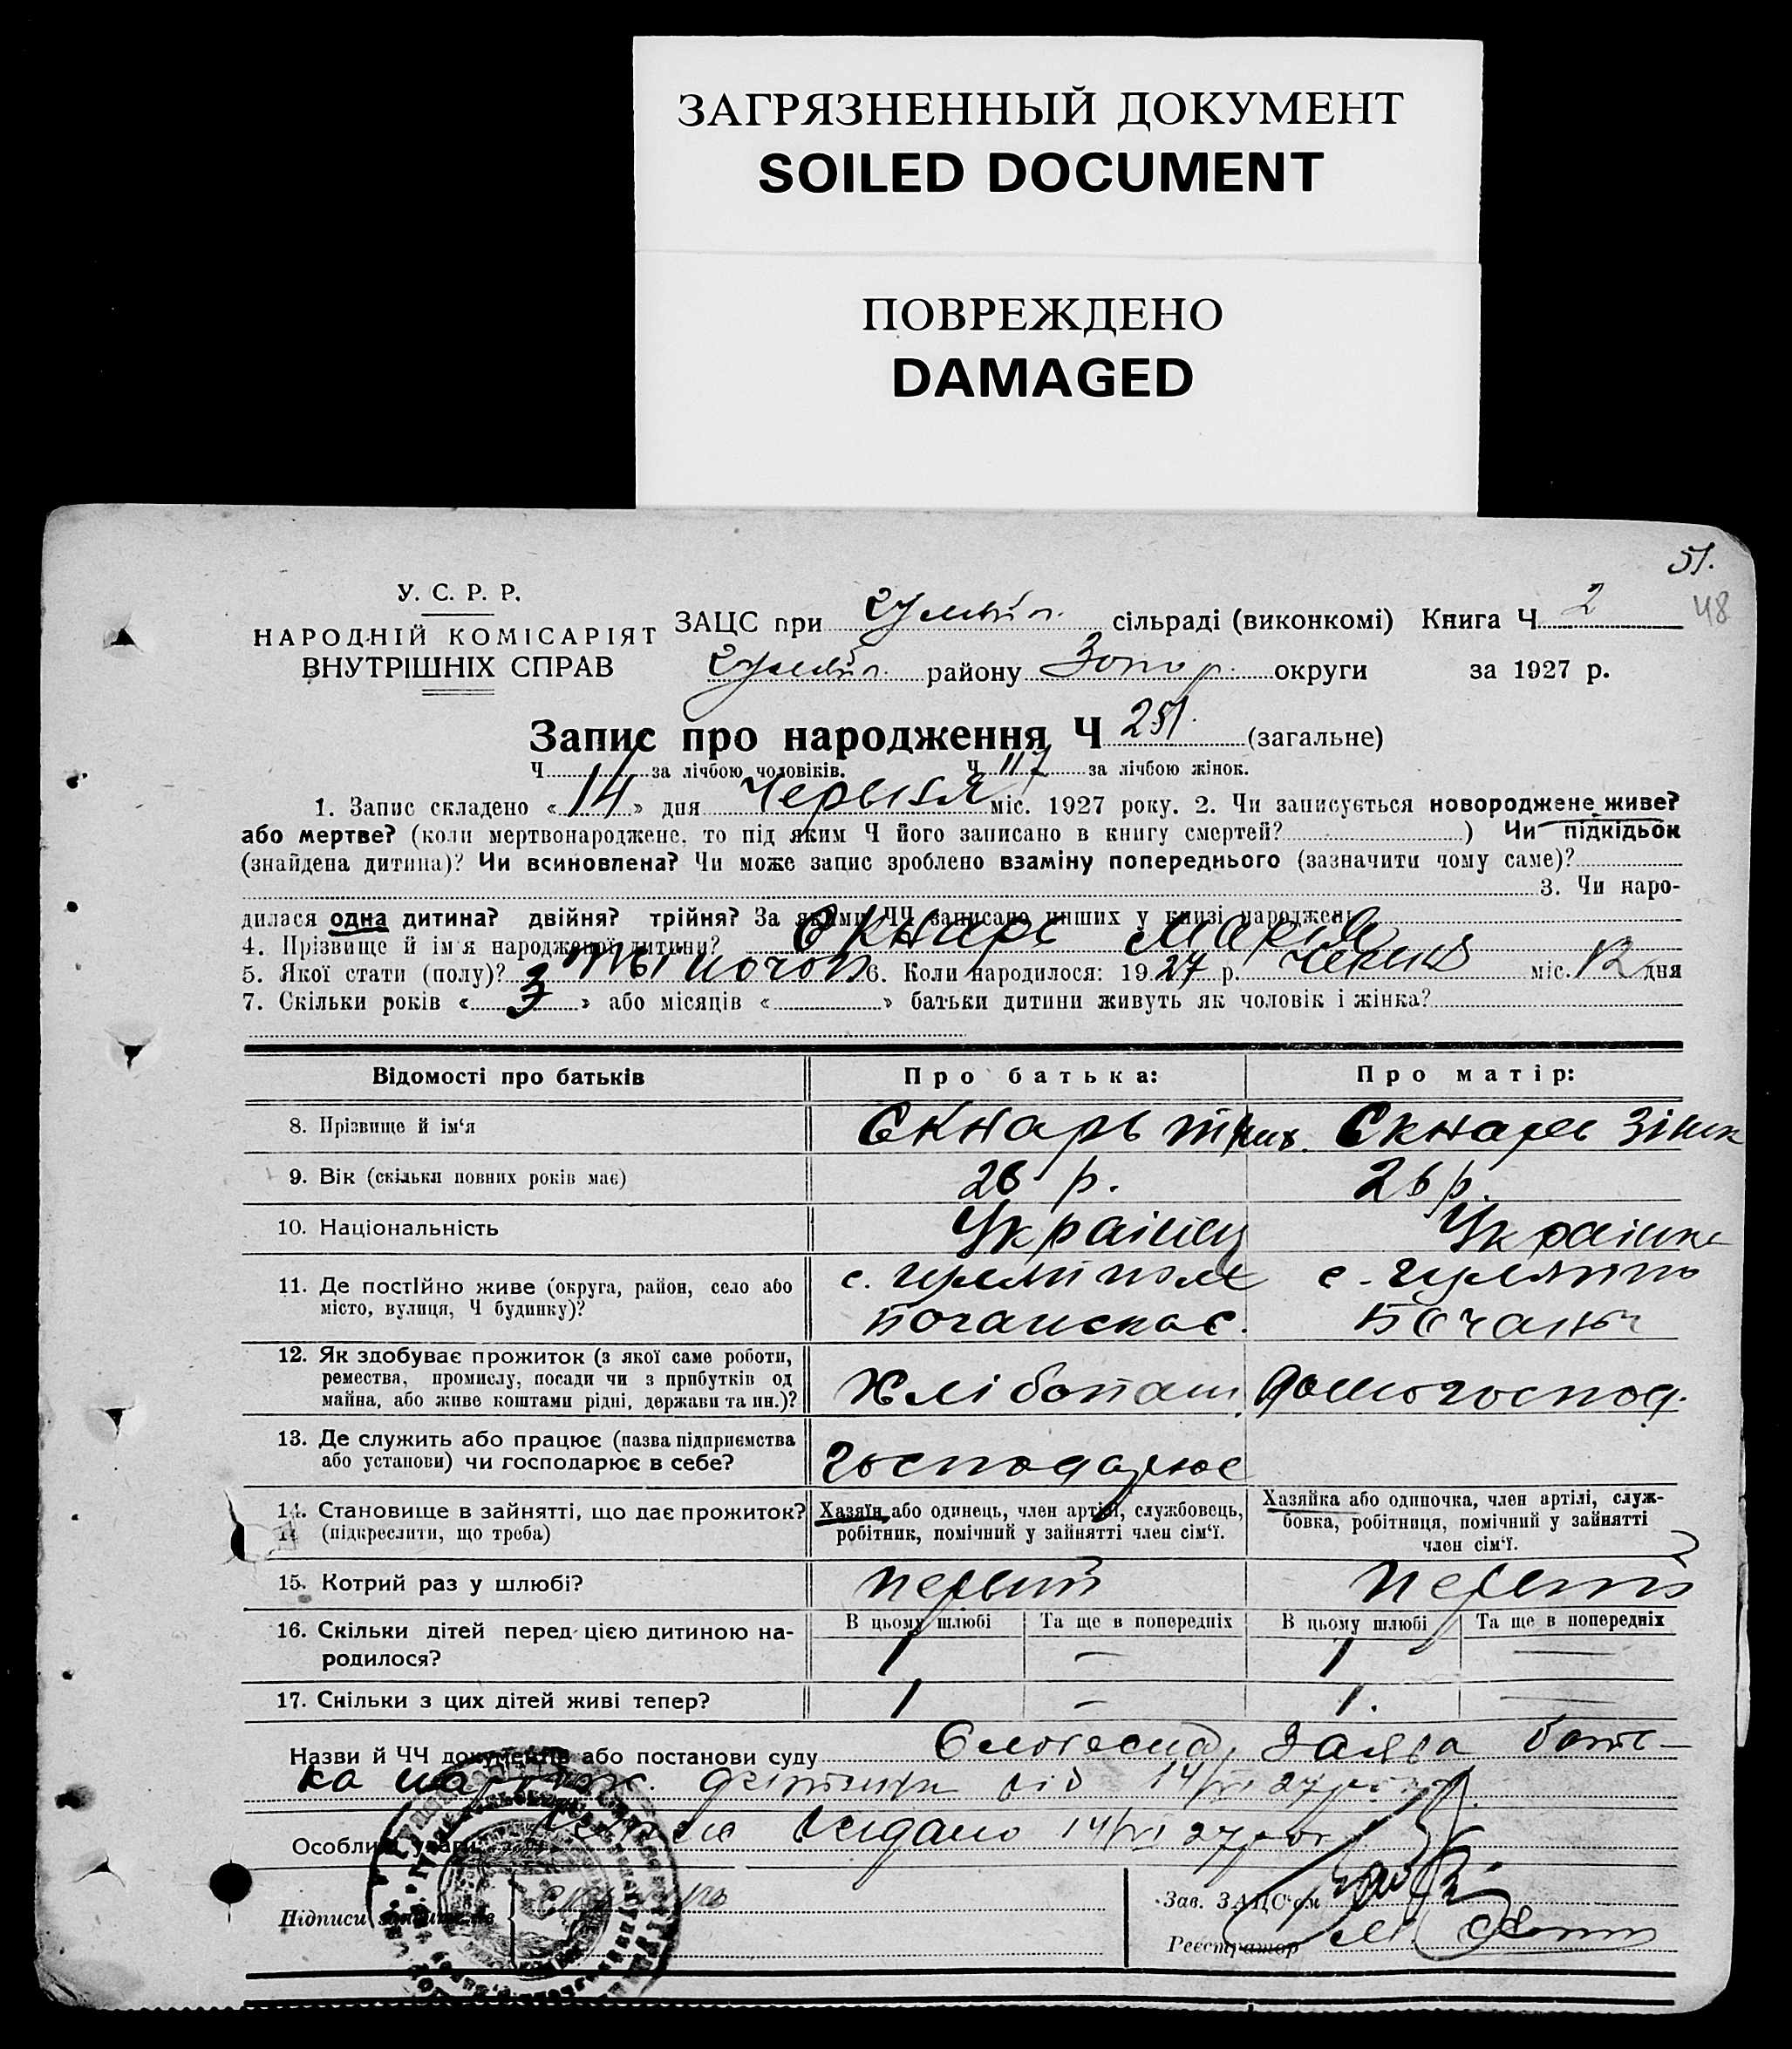 ЗАГРЯЗНЕННЫЙ ДОКУМЕНТ
SOILED DOCUMENT
ПОВРЕЖДЕНО
DAMAGED
51.
48
У. С. Р. Р.
НАРОДНІЙ КОМІСАРІЯТ
ВНУТРІШНІХ СПРАВ
ЗАЦС при Гуляйп. сільраді (виконкомі) Книга Ч 2
Гуляйп. району Запор. округи за 1927 р.
Запис про народження Ч 251. (загальне)
Ч за лічбою чоловіків. Ч 117 за лічбою жінок.
1. Запис складено « 14 » дня Червня міс. 1927 року. 2. Чи записується новороджене живе?
або мертве? (коли мертвонароджене, то під яким Ч його записано в книгу смертей? ) Чи підкідьок
(знайдена дитина)? Чи всиновлена? Чи може запис зроблено взаміну попереднього (зазначити чому саме)?
3. Чи наро-
дилася одна дитина? двійня? трійня? За якими ЧЧ записано инших у книзі народжень
4. Прізвище й ім'я народженої дитини? Скнарь Марія
5. Якої стати (полу)? жіночоі 6. Коли народилося: 1927 р. Червня міс. 12 дня
7. Скільки років « 3 » або місяців « » батьки дитини живуть як чоловік і жінка?
Відомості про батьків
Про батька:
Про матір:
8. Прізвище й ім'я Скнарь Скнарь Зінк
9. Вік (скільки повних років має) 26 р. 26 р.
10. Національність Українец Українка
11. Де постійно живе (округа, район, село або місто, вулиця, Ч будинку)?
с. Гуляйполе с. Гуляйпо
12. Як здобуває прожиток (з якої саме роботи,
ремества, промислу, посади чи з прибутків од
майна, або живе коштами рідні, держави та ин.)?
Хлібопаш. Домогоспод.
13. Де служить або працює (назва підприємства
або установи) чи господарює в себе?
Господарює
14. Становище в зайнятті, що дає прожиток?
(підкреслити, що треба)
Хазяїн, або одинець, член артілі, службовець,
робітник, помічний у зайнятті член сім'ї.
Хазяйка або одиночка, член артілі, служ-
бовка, робітниця, помічний у зайнятті
член сім'ї.
15. Котрий раз у шлюбі? Первий Первий
16. Скільки дітей перед цією дитиною на-
родилося?
В цьому шлюбі Та ще в попередніх В цьому шлюбі Та ще в попередніх
1 — 1 —
17. Скільки з цих дітей живі тепер? 1 — 1. —
Назви й ЧЧ документів або постанови суду Словесна заява бать-
ка від 14/VI 27 р.
Особливі уваги видано 14/VI 27 р.
Підписи
Зав. ЗАЦС'ом
Реєстратор